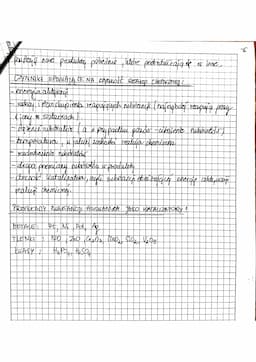 pośrednie produkty, które przekształcają się w inne.
CZYNNIKI WPŁYWAJĄCE NA SZYBKOŚĆ REAKCJI CHEMICZNEJ:
- energia aktywacji
- rodzaj i stan skupienia reagujących substancji (najszybciej reagują gazy
i jony w roztworach)
- stężenie substratów (a w przypadku gazów ciśnienie substratów)
- temperatura, w jakiej zachodzi reakcja chemiczna
- rozdrobnienie substratów
- droga przemiany substratów w produkty
- obecność katalizatora, czyli substancji obniżającej energię aktywacji
reakcji chemicznej
PRZYKŁADY SUBSTANCJI STOSOWANYCH JAKO KATALIZATORY:
METALE: Pt, Ni, Pd, Ag
TLENKI: NO, ZnO, Cr₂O₃, MnO₂, SiO₂, V₂O₅
KWASY: H₃PO₄, H₂SO₄